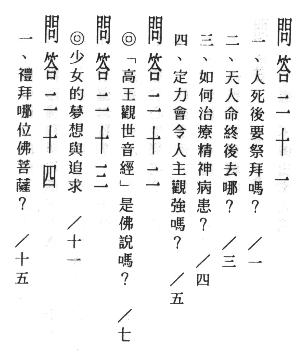 問答二十一
一、人死後要祭拜嗎？ ／一
二、天人命終後去哪？ ／三
三、如何治療精神病患？ ／四
四、定力會令人主觀強嗎？ ／五
問答二十二
◎「高王觀世音經」是佛說嗎？ ／七
問答二十三
◎少女的夢想與追求 ／十一
問答二十四
一、禮拜哪位佛菩薩？ ／十五